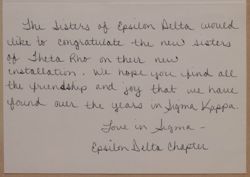 The Sisters of Epsilon Delta would
like to congratulate the new sisters
of Theta Rho on their new
installation. We hope you find all
the friendship and joy that we have
found over the years in Sigma Kappa.
Love in Sigma -
Epsilon Delta Chapter